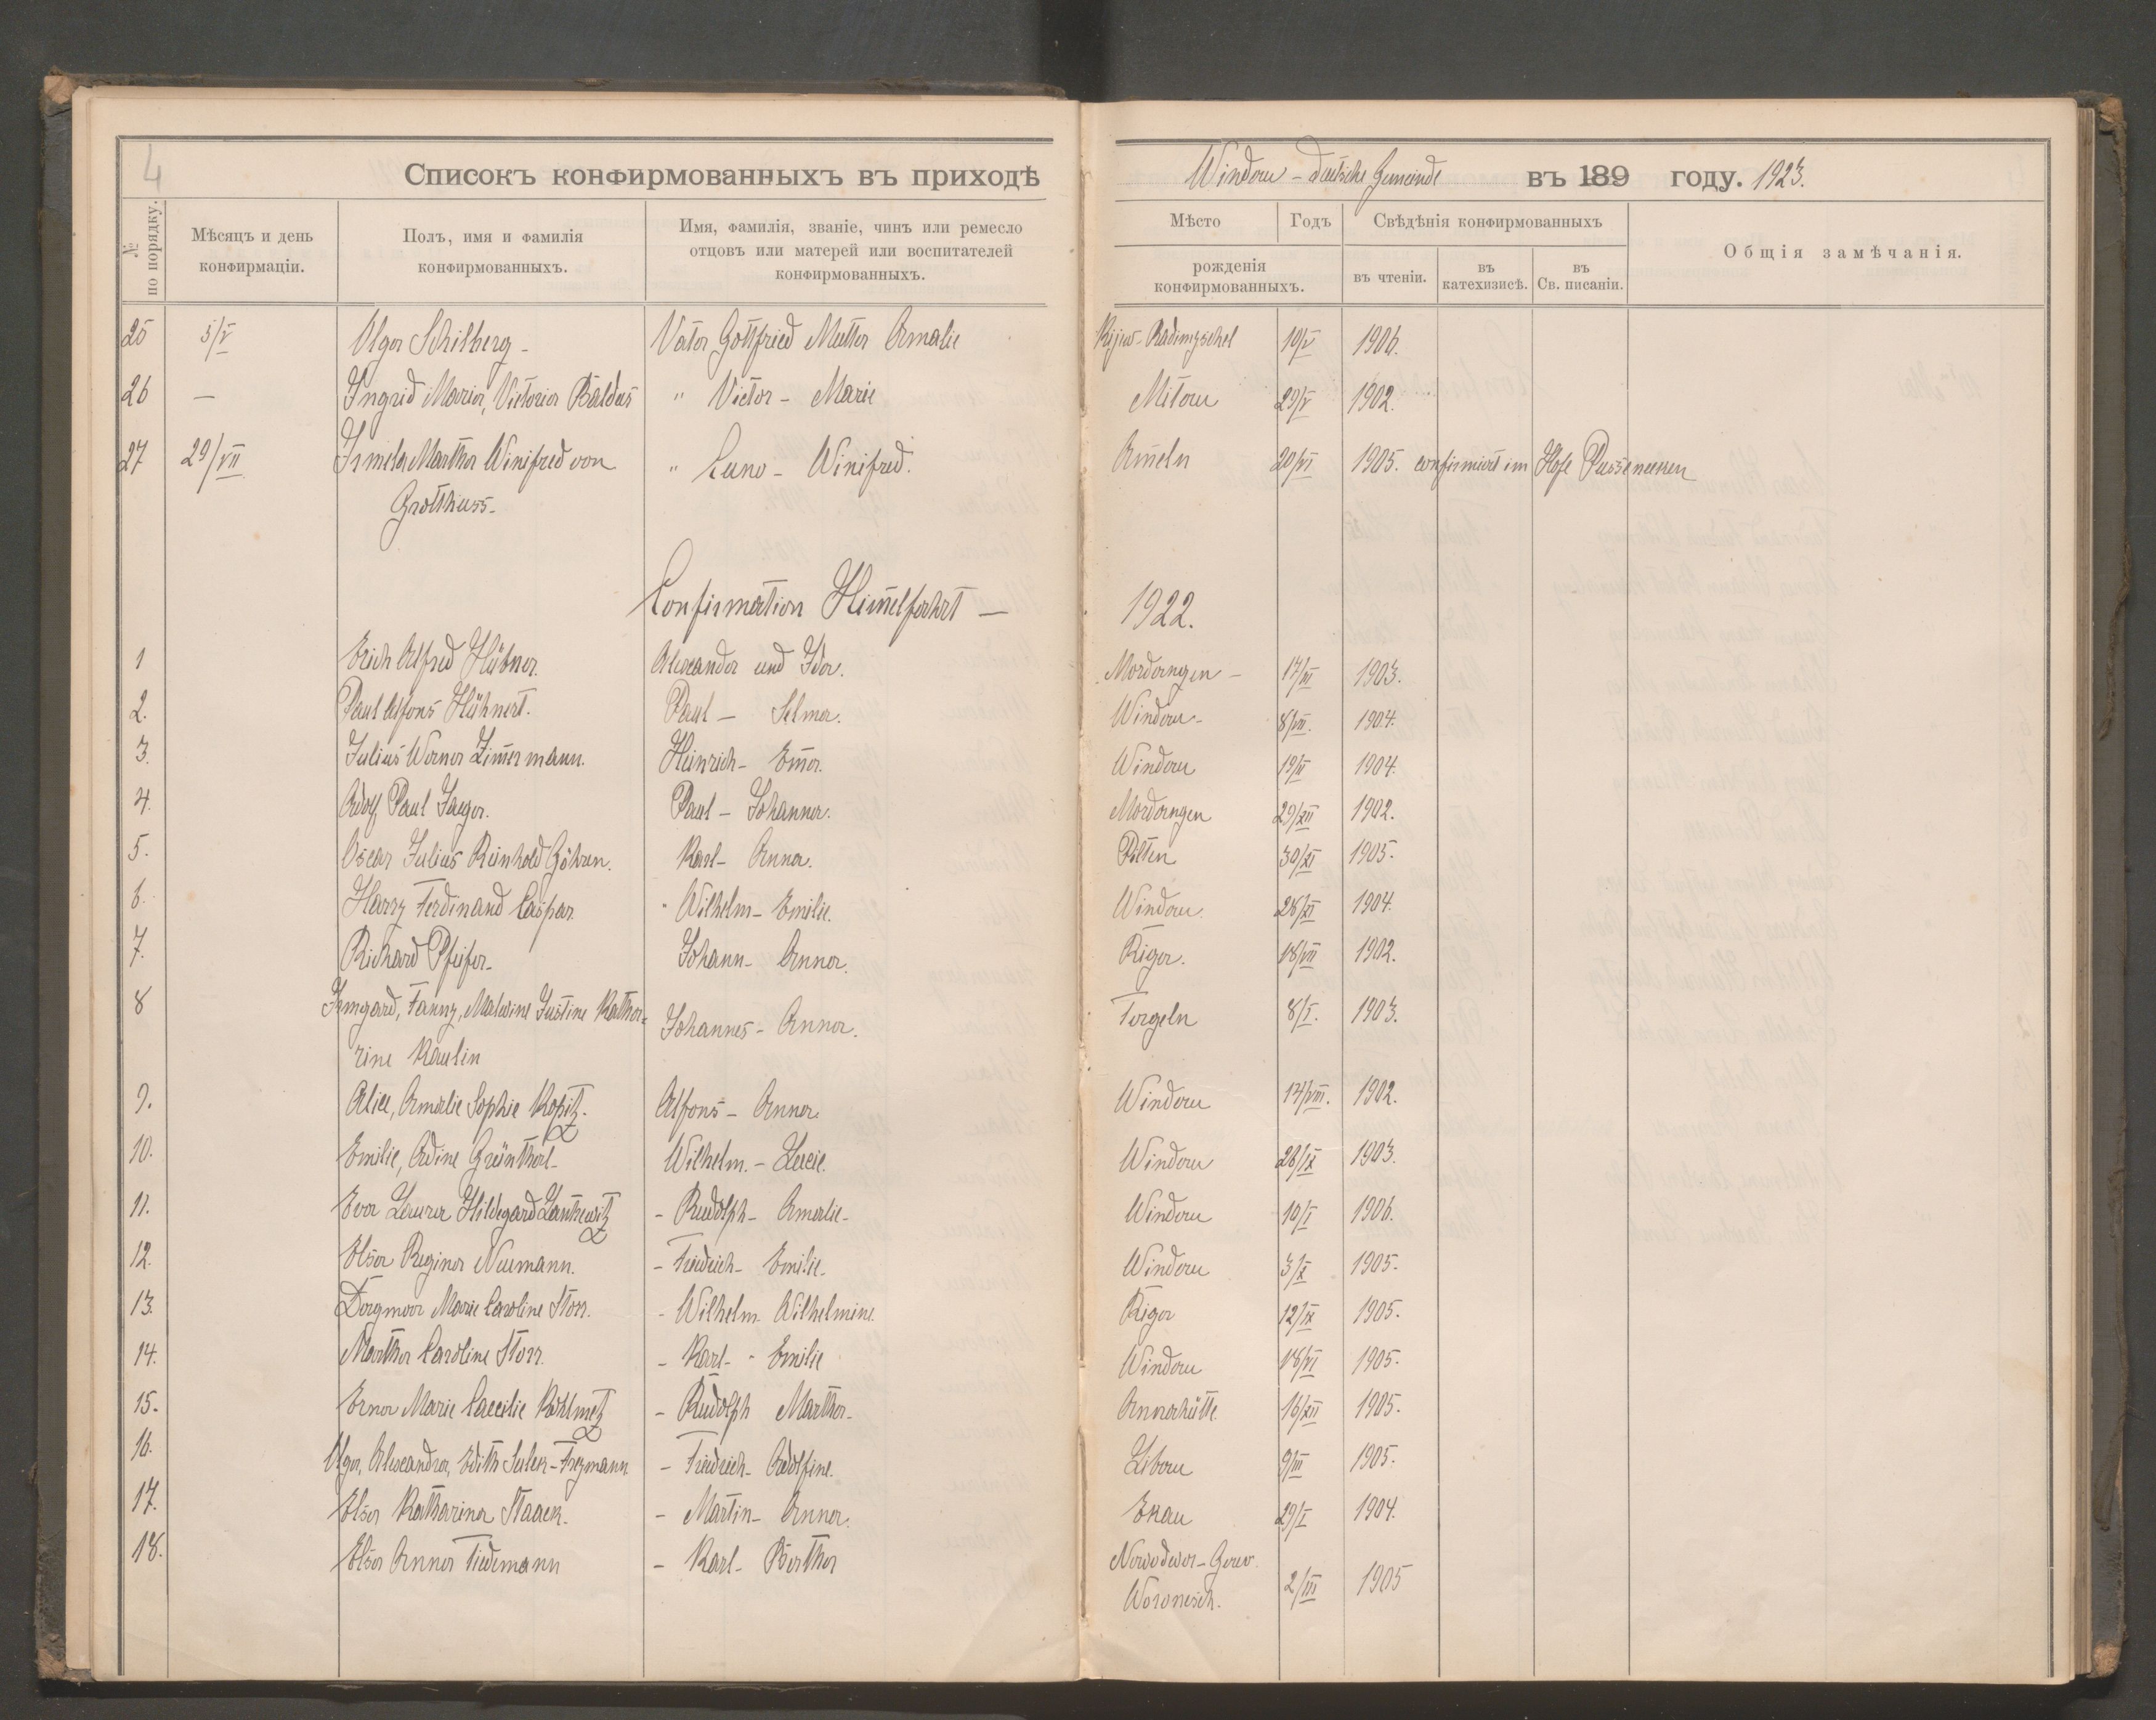 4
Списокъ конфирмованныхъ въ приходѣ Windau - deutsche Gemeinde въ 189 году. 1923.
№ по порядку.
Мѣсяцъ и день конфирмаціи.
Полъ, имя и фамилія конфирмованныхъ.
Имя, фамилія, званіе, чинъ или ремесло отцовъ или матерей или воспитателей конфирмованныхъ.
Мѣсто
Годъ
рожденія конфирмованныхъ.
Свѣдѣнія конфирмованныхъ
въ чтеніи.
въ катехизисѣ.
въ Св. писаніи.
Общія замѣчанія.
25 5/V Olga Schilberg - Vater Gottfried Mutter Amalie Kijew- 10/V 1906.
26 — Ingrid Maria, Victoria Baldus " Victor - Marie Mitau 29/V 1902.
27 29/VII Irmela Martha Winifred von " Cuno - Winifred. Ameln 20/VI 1905. confirmiert im Hofe Pussenecken
Grotthuss-
Confirmation Him̄elfahrt — 1922.
1 Erich Alfred Hübner. Alexander und Ida. Mordangen - 17/III 1903.
2. Paul Alfons Hühnert. Paul - Selma. Windau- 8/VII. 1904.
3. Julius Werner Zim̄ermann. Heinrich - Em̄a. Windau 19/II 1904.
4. Adolf Paul Jaeger. Paul - Johanna. Mordangen 29/XII 1902.
5. Oscar Julius Reinhold Göhren. Karl - Anna. Pilten 30/XI 1905.
6. Harry Ferdinand Caspar " Wilhelm - Emilie. Windau. 28/XI 1904.
7. Richard Pfeifer- Johann - Anna. Riga. 18/VII 1902.
8 Irmgard, Fanny, Malwine Justine Katha= Johannes - Anna. Targeln 8/I. 1903.
rine Kaulin
9. Alice, Amalie Sophie Kopitz. Alfons - Anna. Windau 14/VIII. 1902.
10. Emilie, Adine Grünthal- Wilhelm. - Lucie. Windau 28/IX 1903.
11. Eva Laura Hildegard Lankewitz - Rudolph - Amalie- Windau 10/I 1906.
12. Elsa Regina Neumann. - Friedrich - Emilie- Windau 3/X 1905.
13. Dagmar Marie Caroline Storr. - Wilhelm Wilhelmine. Riga 12/IX 1905.
14. Martha Caroline Storr. - Karl - " Emilie Windau 18/VI 1905.
15. Erna Marie Caecilie Kohlmetz - Rudolph Martha- Annahütte 16/XII 1905.
16. Olga, Alexandra, Edith Suler-Freymann - Friedrich - Adolfine. Libau 9/III 1905.
17. Elsa Katharina Staack- - Martin - Anna. Ekau 29/I 1904.
18. Elsa Anna Tiedemann - Karl - Bertha Nowodwor - Gouv. 2/III 1905
Woronesch.